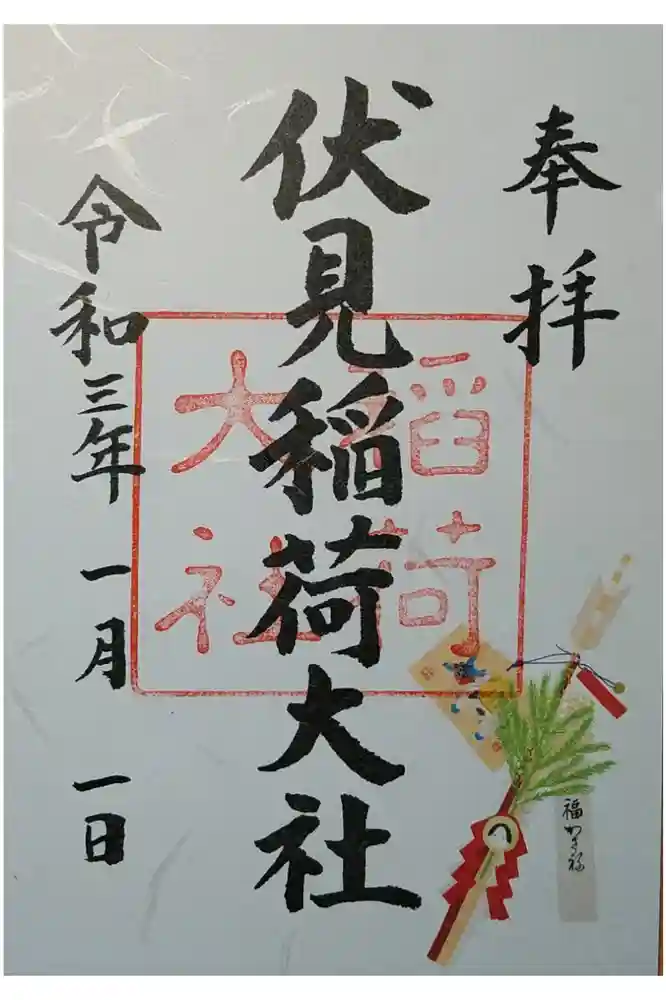 奉拝
伏見稲荷大社
稲荷
大社
令和三年 一月 一日
福かさね